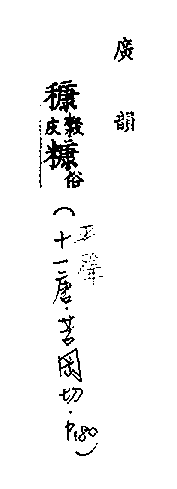 廣韻
穅穀皮糠俗(十一唐·苦岡切·P.180)
平聲